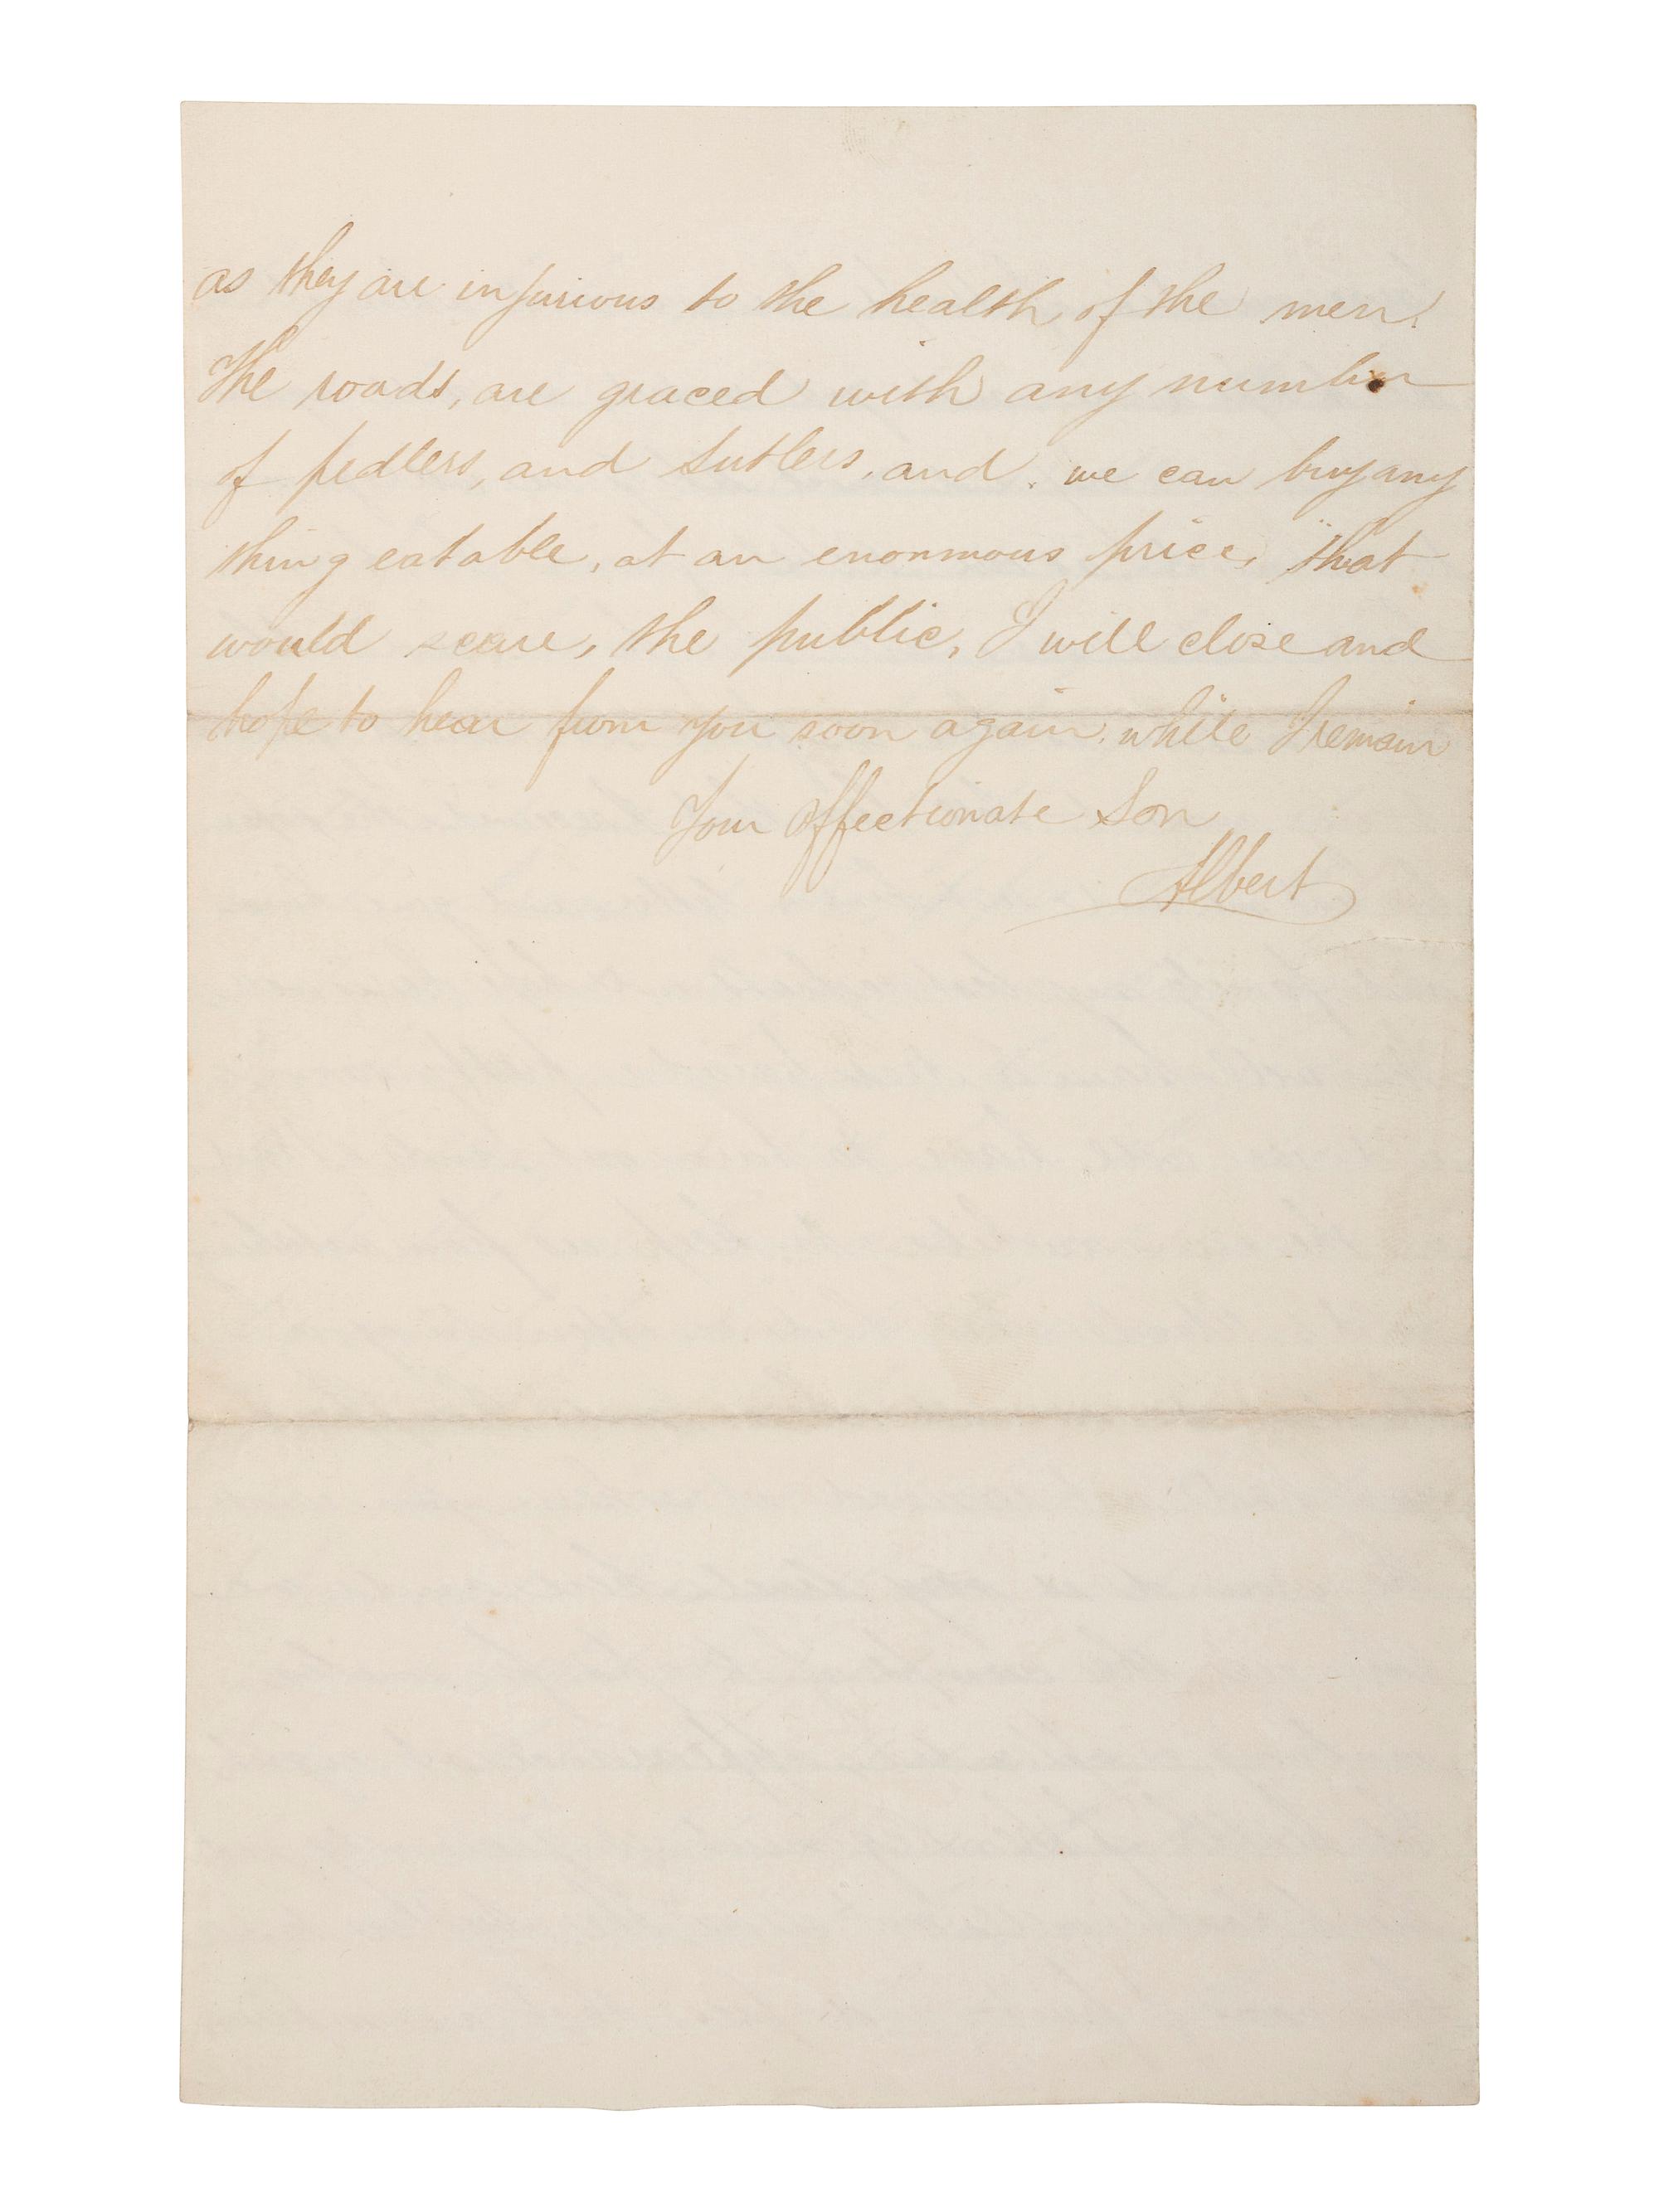 as they are injurious to the health of the men.
The roads, are graced with any number
of pedlers, and Sutlers, and we can buy any
thing eatable, at an enonmous price, that
would scare, the public, I will close and
hope to hear from you soon again, while I remain
Your affectionate Son
Albert